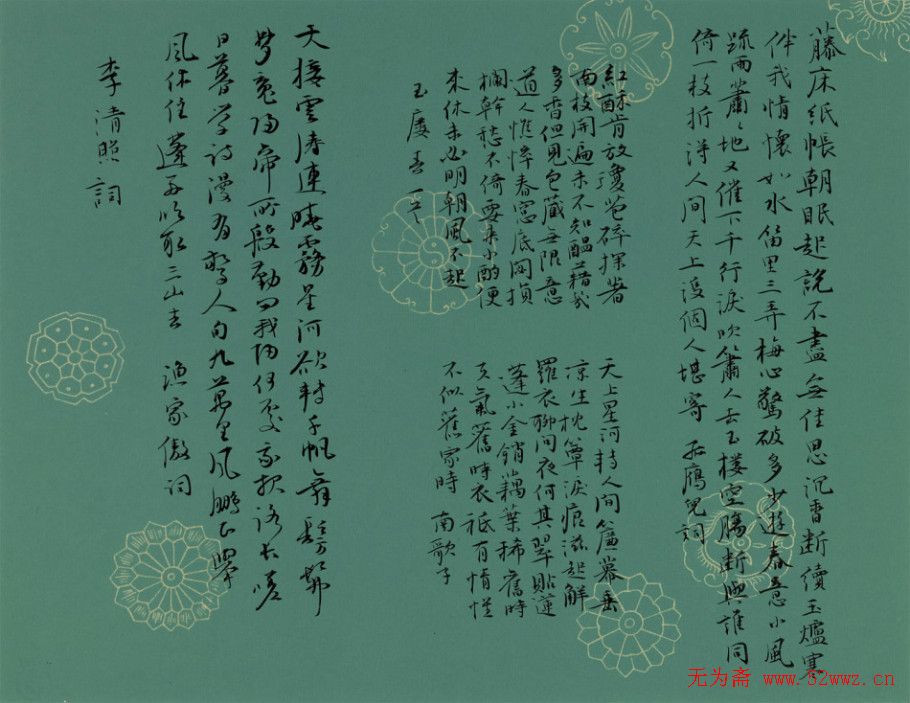 藤床紙帳朝眠起說不盡無佳思沉香断續玉爐寒
伴我情懷如水笛里三弄梅心驚破多少遊春意小風
疏雨蕭〻地又催下千行淚吹簫人去玉楼空腸断與誰同
倚一枝折得人間天上沒個人堪寄 孤鴈兒詞
紅酥肯放瓊苞碎探著
南枝開遍未不知醞藉幾
多香但見包藏無限意
道人憔悴春窓底悶損
欄幹愁不倚要来小酌便
来休未必明朝風不起
玉度春
天上星河轉人間簾幕垂
凉生枕簟淚痕滋起解
羅衣聊问夜何其翠貼蓮
蓬小金銷藕葉稀舊時
天氣舊時衣祗有情懷
不似舊家時 南歌子
天接雲濤連曉霧星河欲轉千帆舞髣髴
梦魂歸帝所殷勤问我歸何處我報路長嗟
日暮学詩漫有驚人句九萬里風鵬正舉
風休住蓬舟吹取三山去 漁家傲词
李清照詞
无为斋 www.52wwz.cn